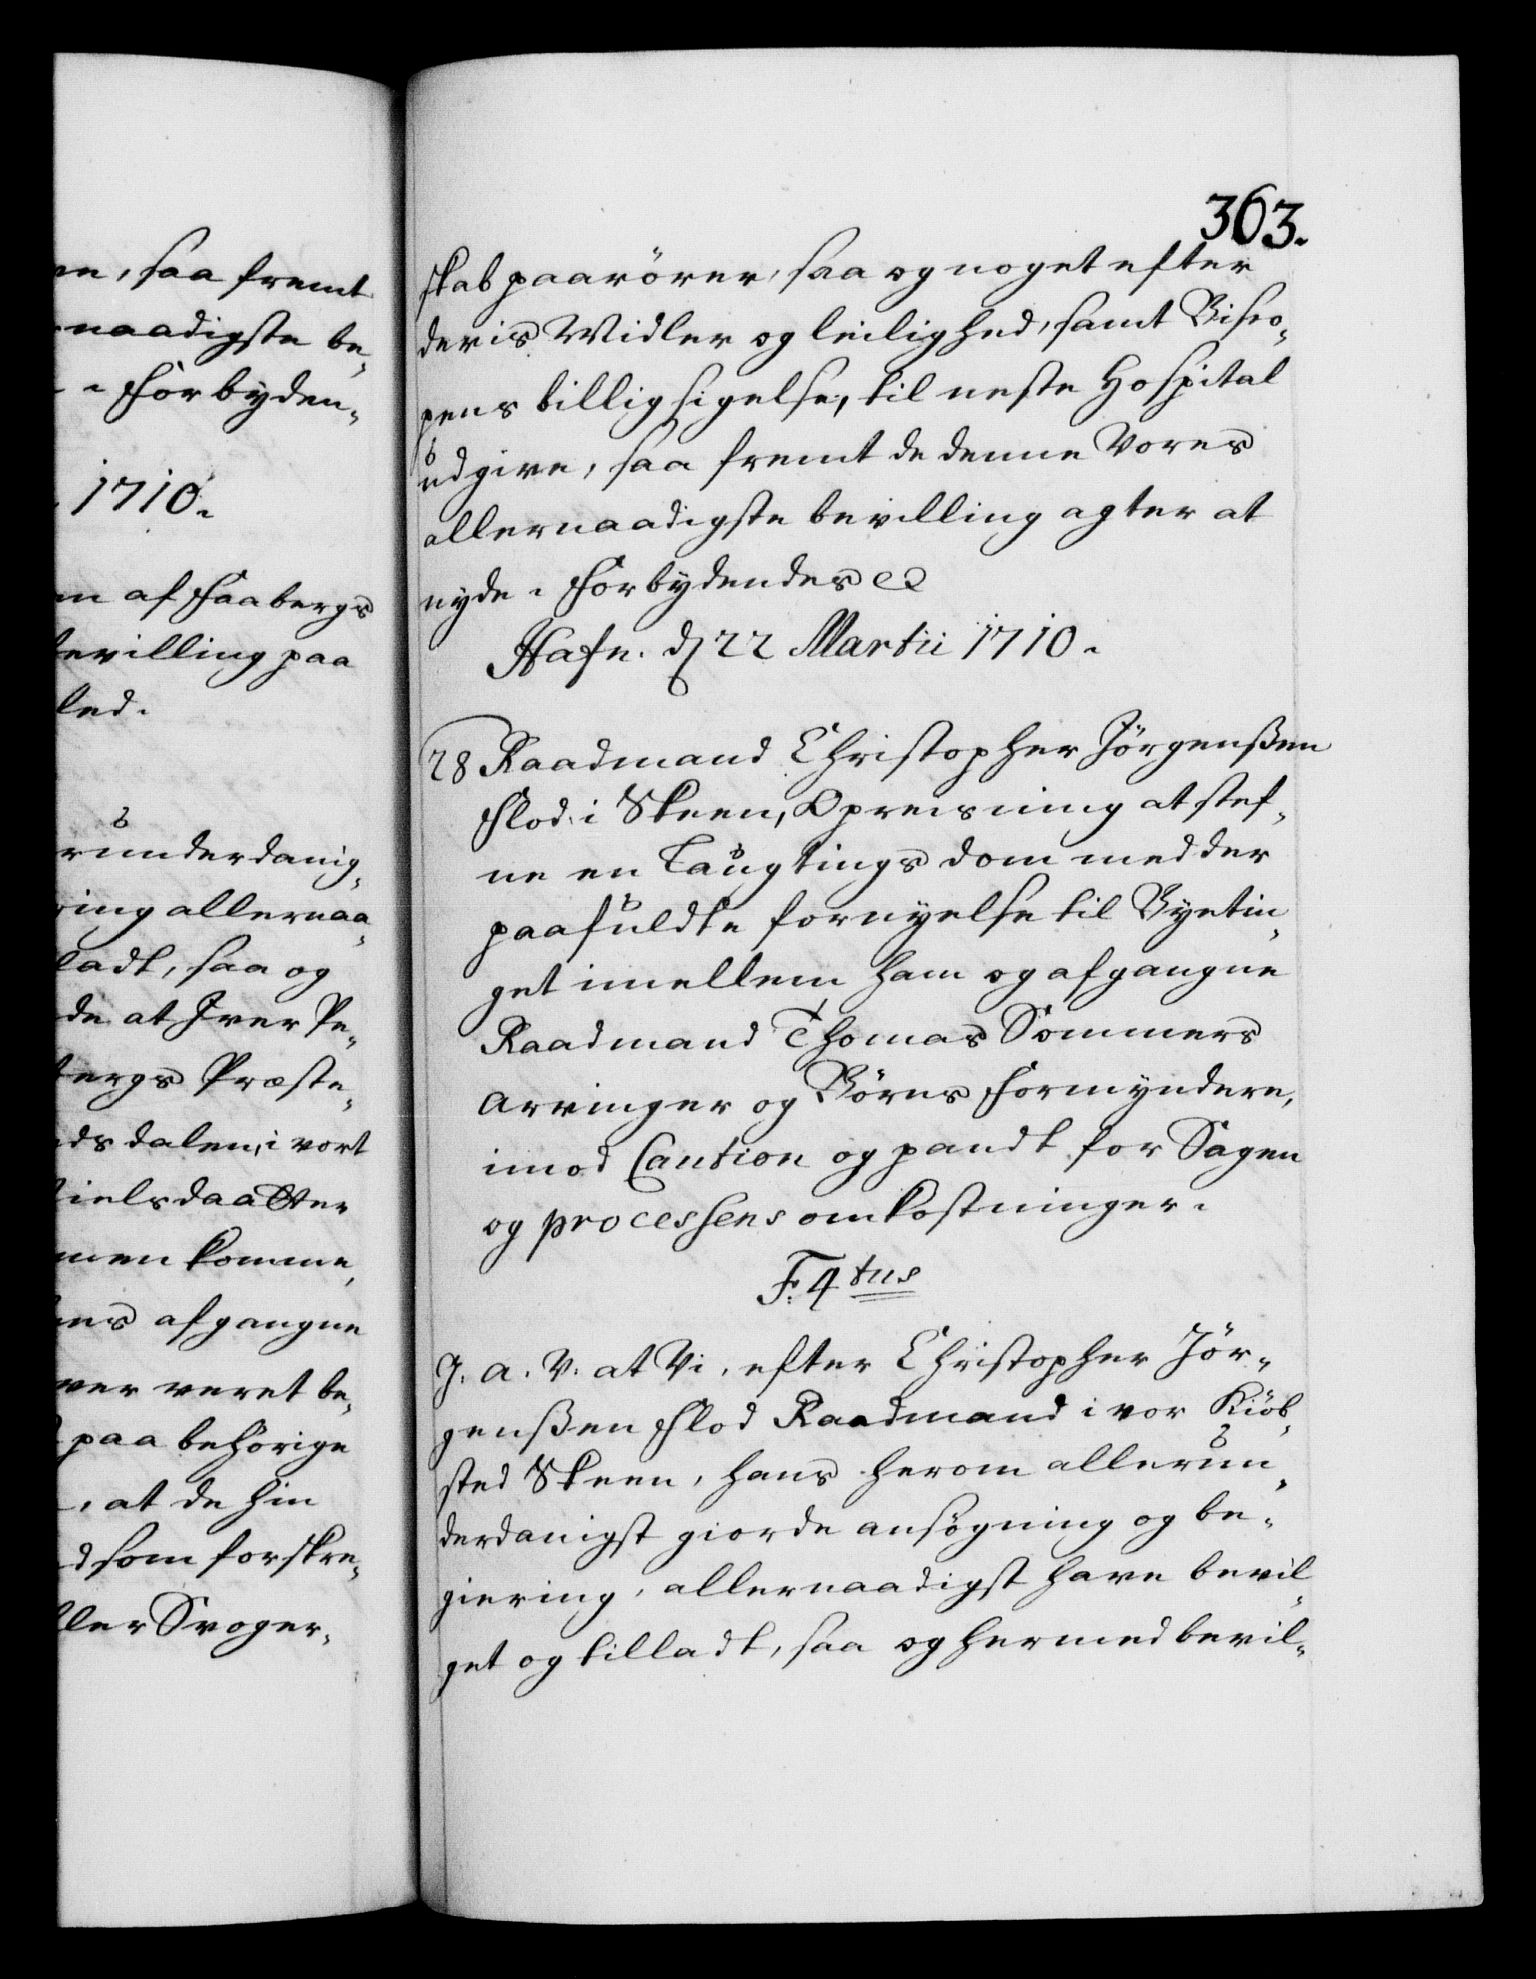 ve, saa fremt
naadigste be,
. Forbyden,
1710.
en af Faabergs
bevilling paa
led.
rúnderdanig,
ring allernaa,
ladt, saa og
de at Iver Pe,
bergs Præste,
ds dalen, i vort
ielsdaatter
men komme,
ens afgangne
ver veret be,
paa behörige
, at de hin
d som forskre,
ller Svoger,
363.
skab paarörer, saa og noget efter
deris Midler og leilighed, samt Bisco,
pens billig sigelse, til neste Hospital
údgive, saa fremt de denne Vores
allernaadigste bevilling agter at
nyde. Forbydendes etc
Hafn. d 22 Martii 1710.
28 Raadmand Christopher Jörgenßen
Flod i Skeen, Opreisning at stef,
ne en Laúgtings dom med der
paafúldte fornyelse til Byetin,
get imellem ham og afgangne
Raadmand Thomas Sommers
Arvinger og Börns Formyndere,
imod Caution og pandt for Sagen
og processens omkostninger.
F. 4tus
G. A. V. at Vi, efter Christopher Jör,
genßen Flod Raadmand i vor Kiöb,
sted Skeen, hans herom allerún,
derdanigst giorde ansögning og be,
giering, allernaadigst have bevil,
get og tilladt, saa og hermed bevil,